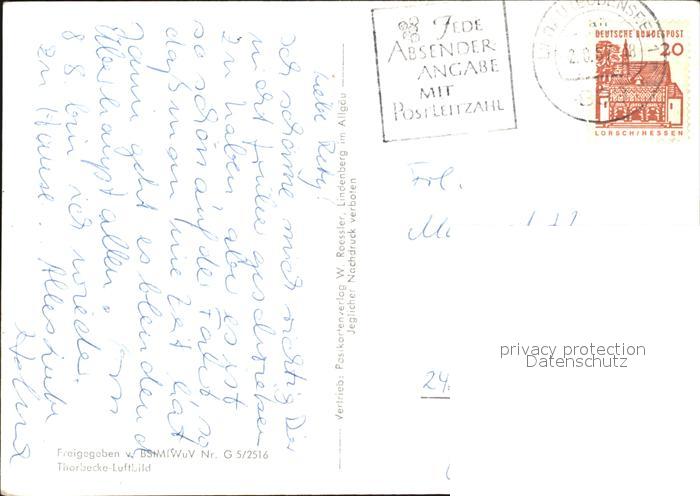 Liebe Betty!
Ich schäme mich richtig Dir
nicht früher geschrieben
zu haben, aber es ist
so schön auf der Fahrt, so
daß man nie Zeit hat.
geht es blendend
Überhaupt allen. Am
8.8. bin ich wieder
zu Hause. Alles Liebe
Vertrieb: Postkartenverlag W. Roessler, Lindenberg im Allgäu
Jeglicher Nachdruck verboten
Freigegeben v. BStMfWuV Nr. G 5/2516
Thorbecke-Luftbild
JEDE
ABSENDER-
ANGABE
MIT
POSTLEITZAHL
DEUTSCHE BUNDESPOST
20
LORSCH/HESSEN
Frl.
24
privacy protection
Datenschutz